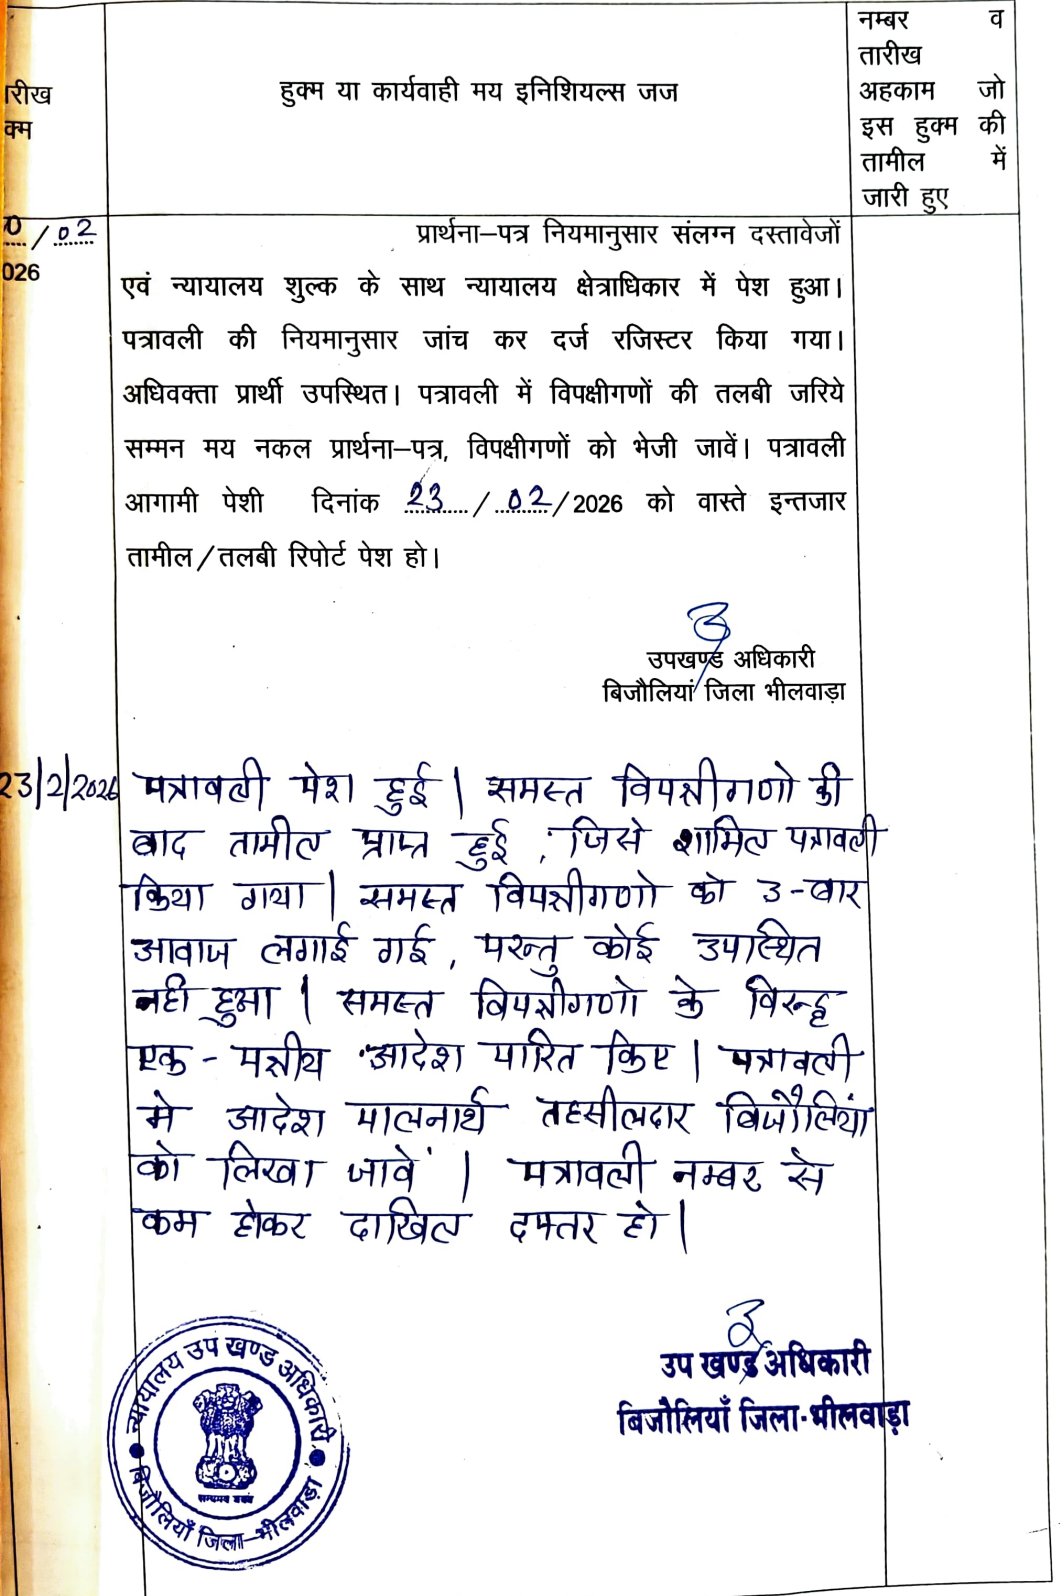 रीख
क्म
हुक्म या कार्यवाही मय इनिशियल्स जज
नम्बर व
तारीख
अहकाम जो
इस हुक्म की
तामील में
जारी हुए
0/02
026
प्रार्थना–पत्र नियमानुसार संलग्न दस्तावेजों
एवं न्यायालय शुल्क के साथ न्यायालय क्षेत्राधिकार में पेश हुआ।
पत्रावली की नियमानुसार जांच कर दर्ज रजिस्टर किया गया।
अधिवक्ता प्रार्थी उपस्थित। पत्रावली में विपक्षीगणों की तलबी जरिये
सम्मन मय नकल प्रार्थना–पत्र, विपक्षीगणों को भेजी जावें। पत्रावली
आगामी पेशी दिनांक 23/02/2026 को वास्ते इन्तजार
तामील/तलबी रिपोर्ट पेश हो।
उपखण्ड अधिकारी
बिजौलियां जिला भीलवाड़ा
23/2/2026 पत्रावली पेश हुई। समस्त विपक्षीगणो की
बाद तामील प्राप्त हुई, जिसे शामिल पत्रावली
किया गया। समस्त विपक्षीगणो को 3-बार
आवाज लगाई गई, परन्तु कोई उपस्थित
नही हुआ। समस्त विपक्षीगणो के विरुद्ध
एक-पक्षीय आदेश पारित किए। पत्रावली
मे आदेश पालनार्थ तहसीलदार बिजौलियां
को लिखा जावें। पत्रावली नम्बर से
कम होकर दाखिल दफ्तर हो।
उप खण्ड अधिकारी
बिजौलियाँ जिला-भीलवाड़ा
न्यायालय उप खण्ड अधिकारी
बिजौलियाँ जिला–भीलवाड़ा
सत्यमेव जयते